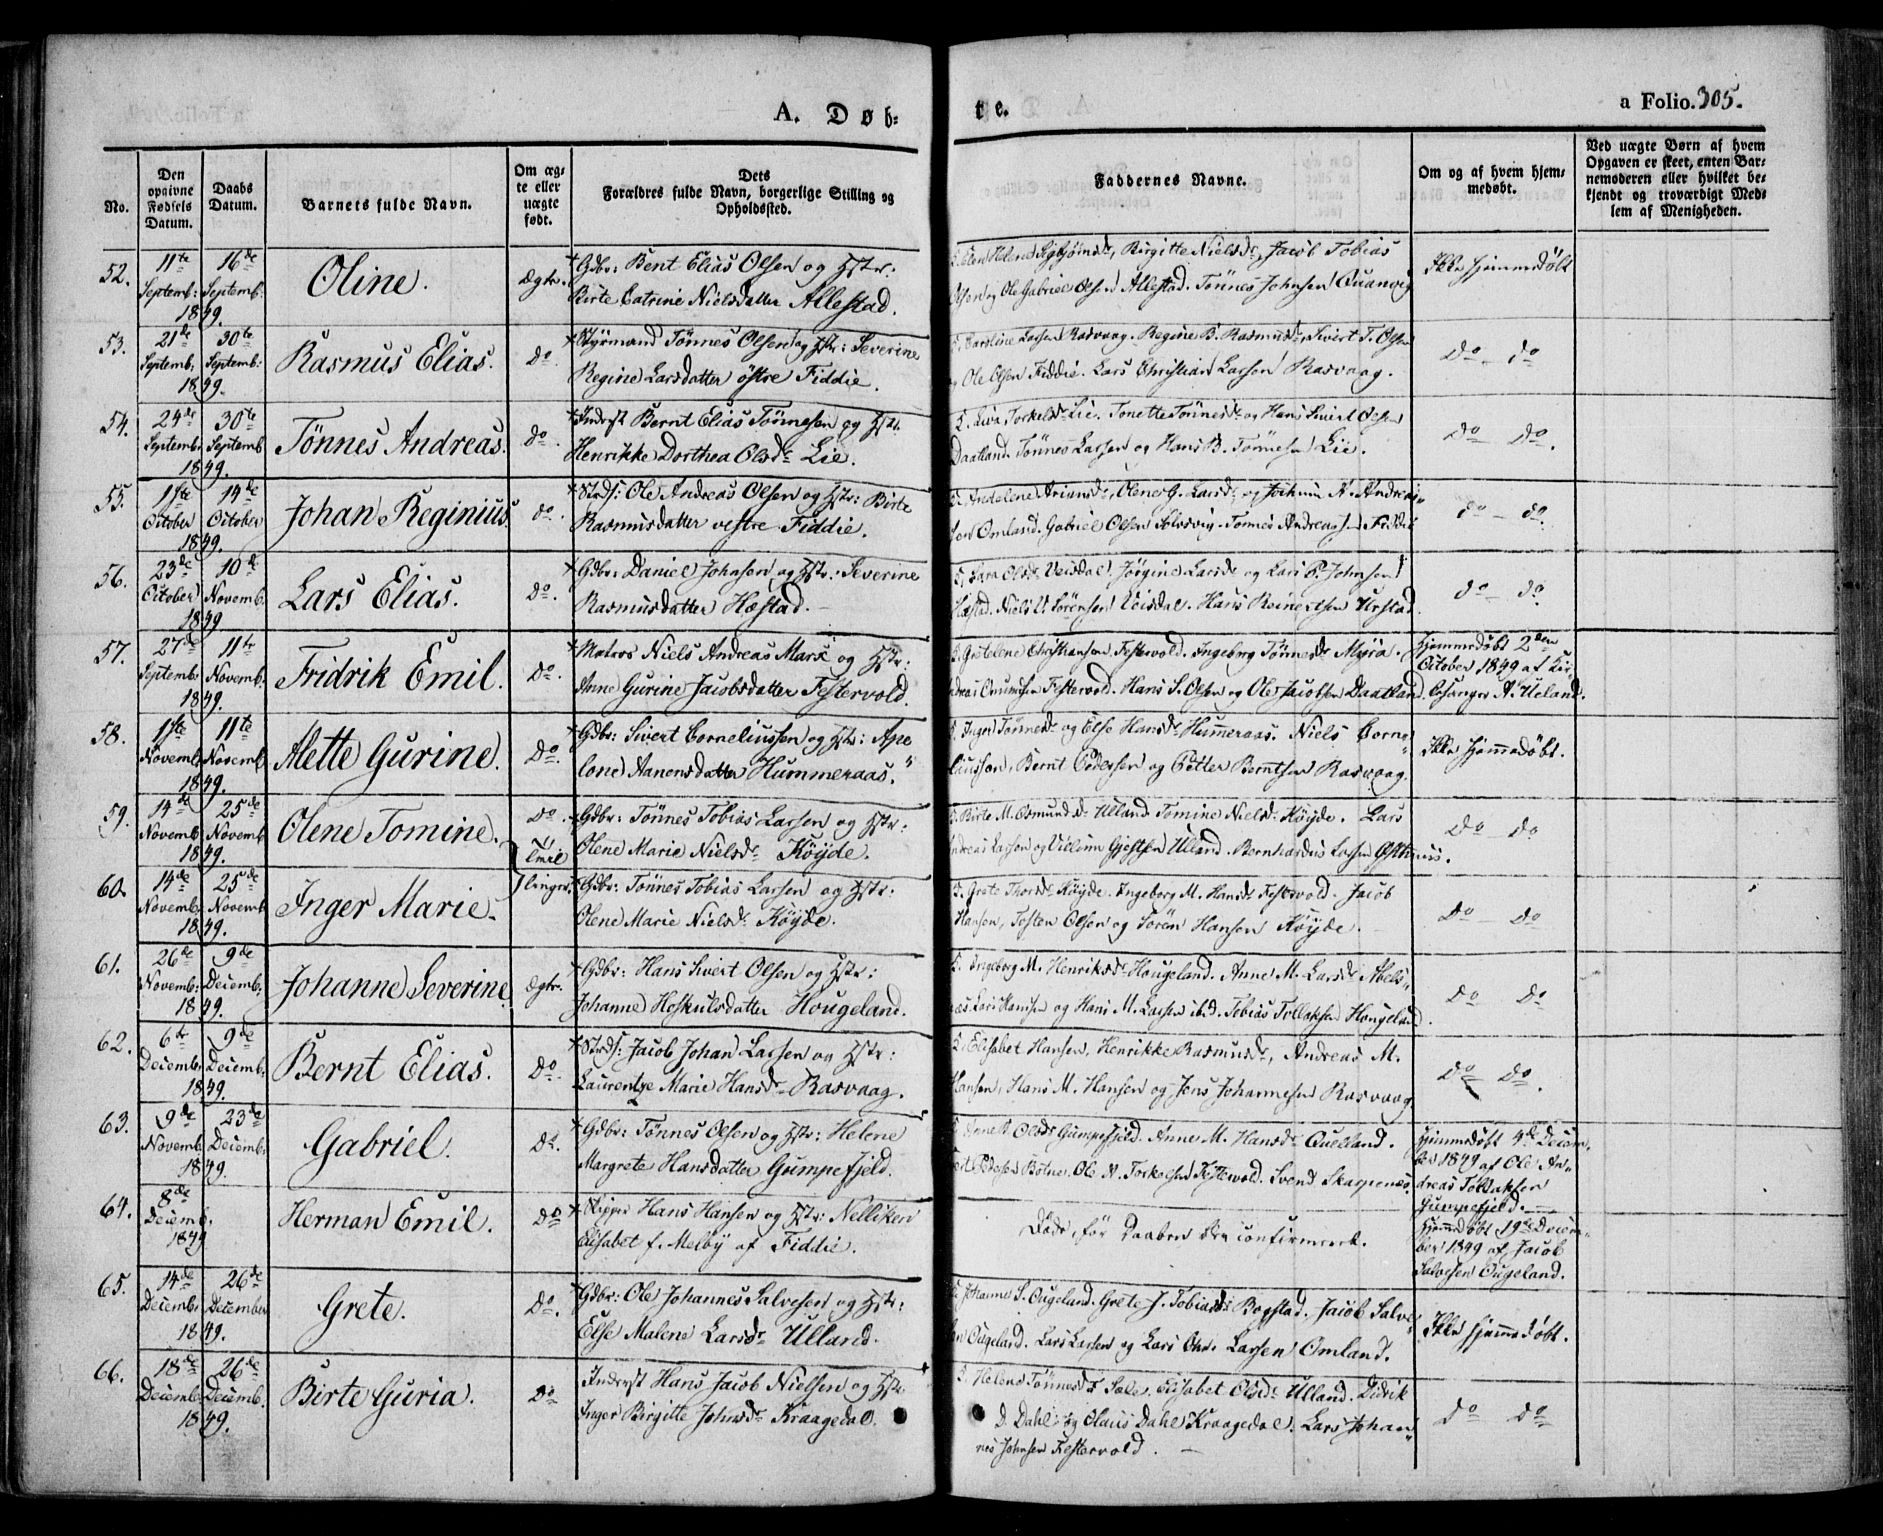 A. Døb-
te.
a Folio. 305.
No.
Den opgivne Fødsels Datum.
Daabs Datum.
Barnets fulde Navn.
Om ægte eller uægte født.
Dets Forældres fulde Navn, borgerlige Stilling og Opholdssted.
Faddernes Navne.
Om og af hvem hjemmedøbt.
Ved uægte Børn af hvem Opgaven er skeet, enten Barnemoderen eller hvilket bekjendt og troværdigt Medlem af Menigheden.
52. 11te Septemb: 1849. 16de Septemb: Oline. Ægte. Gdbr: Bent Elias Olsen og Hstr:
Birte Catrine Nielsdatter Allestad.
Birgitte Nielsd:, Jacob Tobias
Olsen og Ole Gabriel Olsen Allestad. Tønnes Johnsen Quanvig
Ikke hjemmedøbt
53. 21de Septemb: 1849. 30te Septemb: Rasmus Elias. Do. Styrmand Tønnes Olsen og Hstr: Severine
Regine Larsdatter østre Fiddie.
Caroline Larsen Rasvaag. Regine B. Rasmusd:, Sivert T. Olsen
og Ole Olsen Fiddie. Lars Christian Larsen Rasvaag.
Do - do
54. 24de Septemb: 1849. 30te Septemb Tønnes Andreas. Do. Inderst Bernt Elias Tønnesen og Hstr.
Henrikke Dorthea Olsd: Lie.
Torkelsd: Lie. Tonette Tønnesd: og Hans Sivert Olsen
Daatland. Tønnes Larsen og Hans B. Tønnesen Lie.
Do - Do.
55. 1ste October 1849. 14de October Johan Reginius. do. Strds: Ole Andreas Olsen og Hstr: Birte
Rasmusdatter vestre Fiddie.
Andelene Ariansd:, Olene G. Larsd: og Jochum A. Andrea-
sen Omland. Gabriel Olsen Tønnes Andreassen Fiddie
do - do.
56. 23de October 1849 10de Novemb. Lars Elias. Do. Gdbr: Daniel Johnsen og Hstr: Severine
Rasmusdatter Hæstad.
Sara Olsd: Veisdal, Jørgine Larsd: og Lars P. Johnsen
Hæstad. Niels Sørensen Veisdal. Hans Reinertsen Urstad.
do - do.
57. 27de Septemb: 1849. 11te Novemb. Fridrik Emil. Do. Matros Niels Andreas Marx og Hstr:
Anne Gurine Jacobsdatter Festervold.
Gretelene Christiansen, Festervold. Ingeborg Tønnesd: Myra.
Festervold. Hans S. Olsen og Ole Jacobsen Daatland.
Hjemmedøbt 2den
October 1849 af Kir-
kesanger A. Ueland.
58. 1ste Novemb. 1849. 11te Novemb. Mette Gurine. Do. Gdbr: Sivert Corneliussen og Hstr: Ape
lone Aanonsdatter Hummeraas.
Inger Tønnesd: og Else Hansd: Hummeraas. Niels Corne
liussen, Bernt Pedersen og Petter Berntsen Rasvaag.
Ikke hjemmedøbt.
59. 14de Novemb: 1849. 25de Novemb. Olene Tomine. Do. Gdbr: Tønnes Tobias Larsen og Hstr:
Olene Marie Nielsd: Køyde.
Birte M. Osmundsd: Ulland Tomine Nielsd: Køyde. Lars
Andreas Larsen og Villum Gjertsen Ulland. Bernhardus Larsen
Do - Do
Tvil
linger.
60. 14de Novemb: 1849. 25de Novemb. Inger Marie. Gdbr: Tønnes Tobias Larsen og Hstr:
Olene Marie Nielsd: Køyde.
Grete Thorsd: Køyde. Ingeborg M. Hansd: Festervold. Jacob
Hansen, Tosten Olsen og Søren Hansen Køyde.
Do - Do
61. 26de Novemb: 1849. 9de Decemb: Johanne Severine. Ægte. Gdbr: Hans Sivert Olsen og Hstr:
Johanne Hoskulsdatter Hougeland.
Ingeborg M. Henriksd: Hougeland. Anne M. Larsd: Abels-
aas. Lars Hansen og Hans M. Larsen ibid. Tobias Tollaksen Hougeland.
Do Do
62. 6te Decemb: 1849. 9de Decemb: Bernt Elias. Do. Strds: Jacob Johan Larsen og Hstr:
Laurentze Marie Hansd: Rasvaag.
Elisabet Hansen, Henrikke Rasmusd:, Andreas M.
Hansen, Hans M. Hansen og Jens Johannesen Rasvaag.
Do Do.
63. 9de Novemb. 1849. 23de Decemb: Gabriel. Do. Gdbr: Tønnes Olsen og Hstr: Helene
Margrete Hansdatter Gumpefjeld.
Olsd: Gumpefjeld. Anne M. Hansd: Queland.
Pedersen Botne. Ole N. Torkelsen Festervold. Svend Skarpenæs.
Hjemmedøbt 4de Decem-
ber 1849 af Ole An-
dreas Tollaksen
Gumpefjeld.
64. 8de Decemb. 1849 Herman Emil. Do Skipper Hans Hansen og Hstr: Nelliken
Elisabet f. Melby af Fiddie.
Døde, før Daaben blev confirmeret.
Hjemmdøbt 19de Decem-
ber 1849 af Jacob
Salvesen Ougeland.
65. 14de Decemb: 1849. 26de December Grete. Do. Gdbr: Ole Johannes Salvesen og Hstr:
Else Malene Larsd: Ulland.
Johanne S. Ougeland. Grete J. Tobiasd: Bogstad. Jacob Salve-
sen Ougeland. Lars Larsen og Lars Chr. Larsen Omland.
Ikke hjemmedøbt.
66. 18de Decemb: 1849. 26de Decemb. Birte Guria. Do Inderst Hans Jacob Nielsen og Hstr
Inger Birgitte Johnsd: Kraagedal.
Helene Tønnesd: Sæle. Elisabet Olsd: Ulland. Didrik
D. Dahl og Olaus Dahl Kraagedal. Lars Johan-
nes Johnsen Festervold.
Do Do